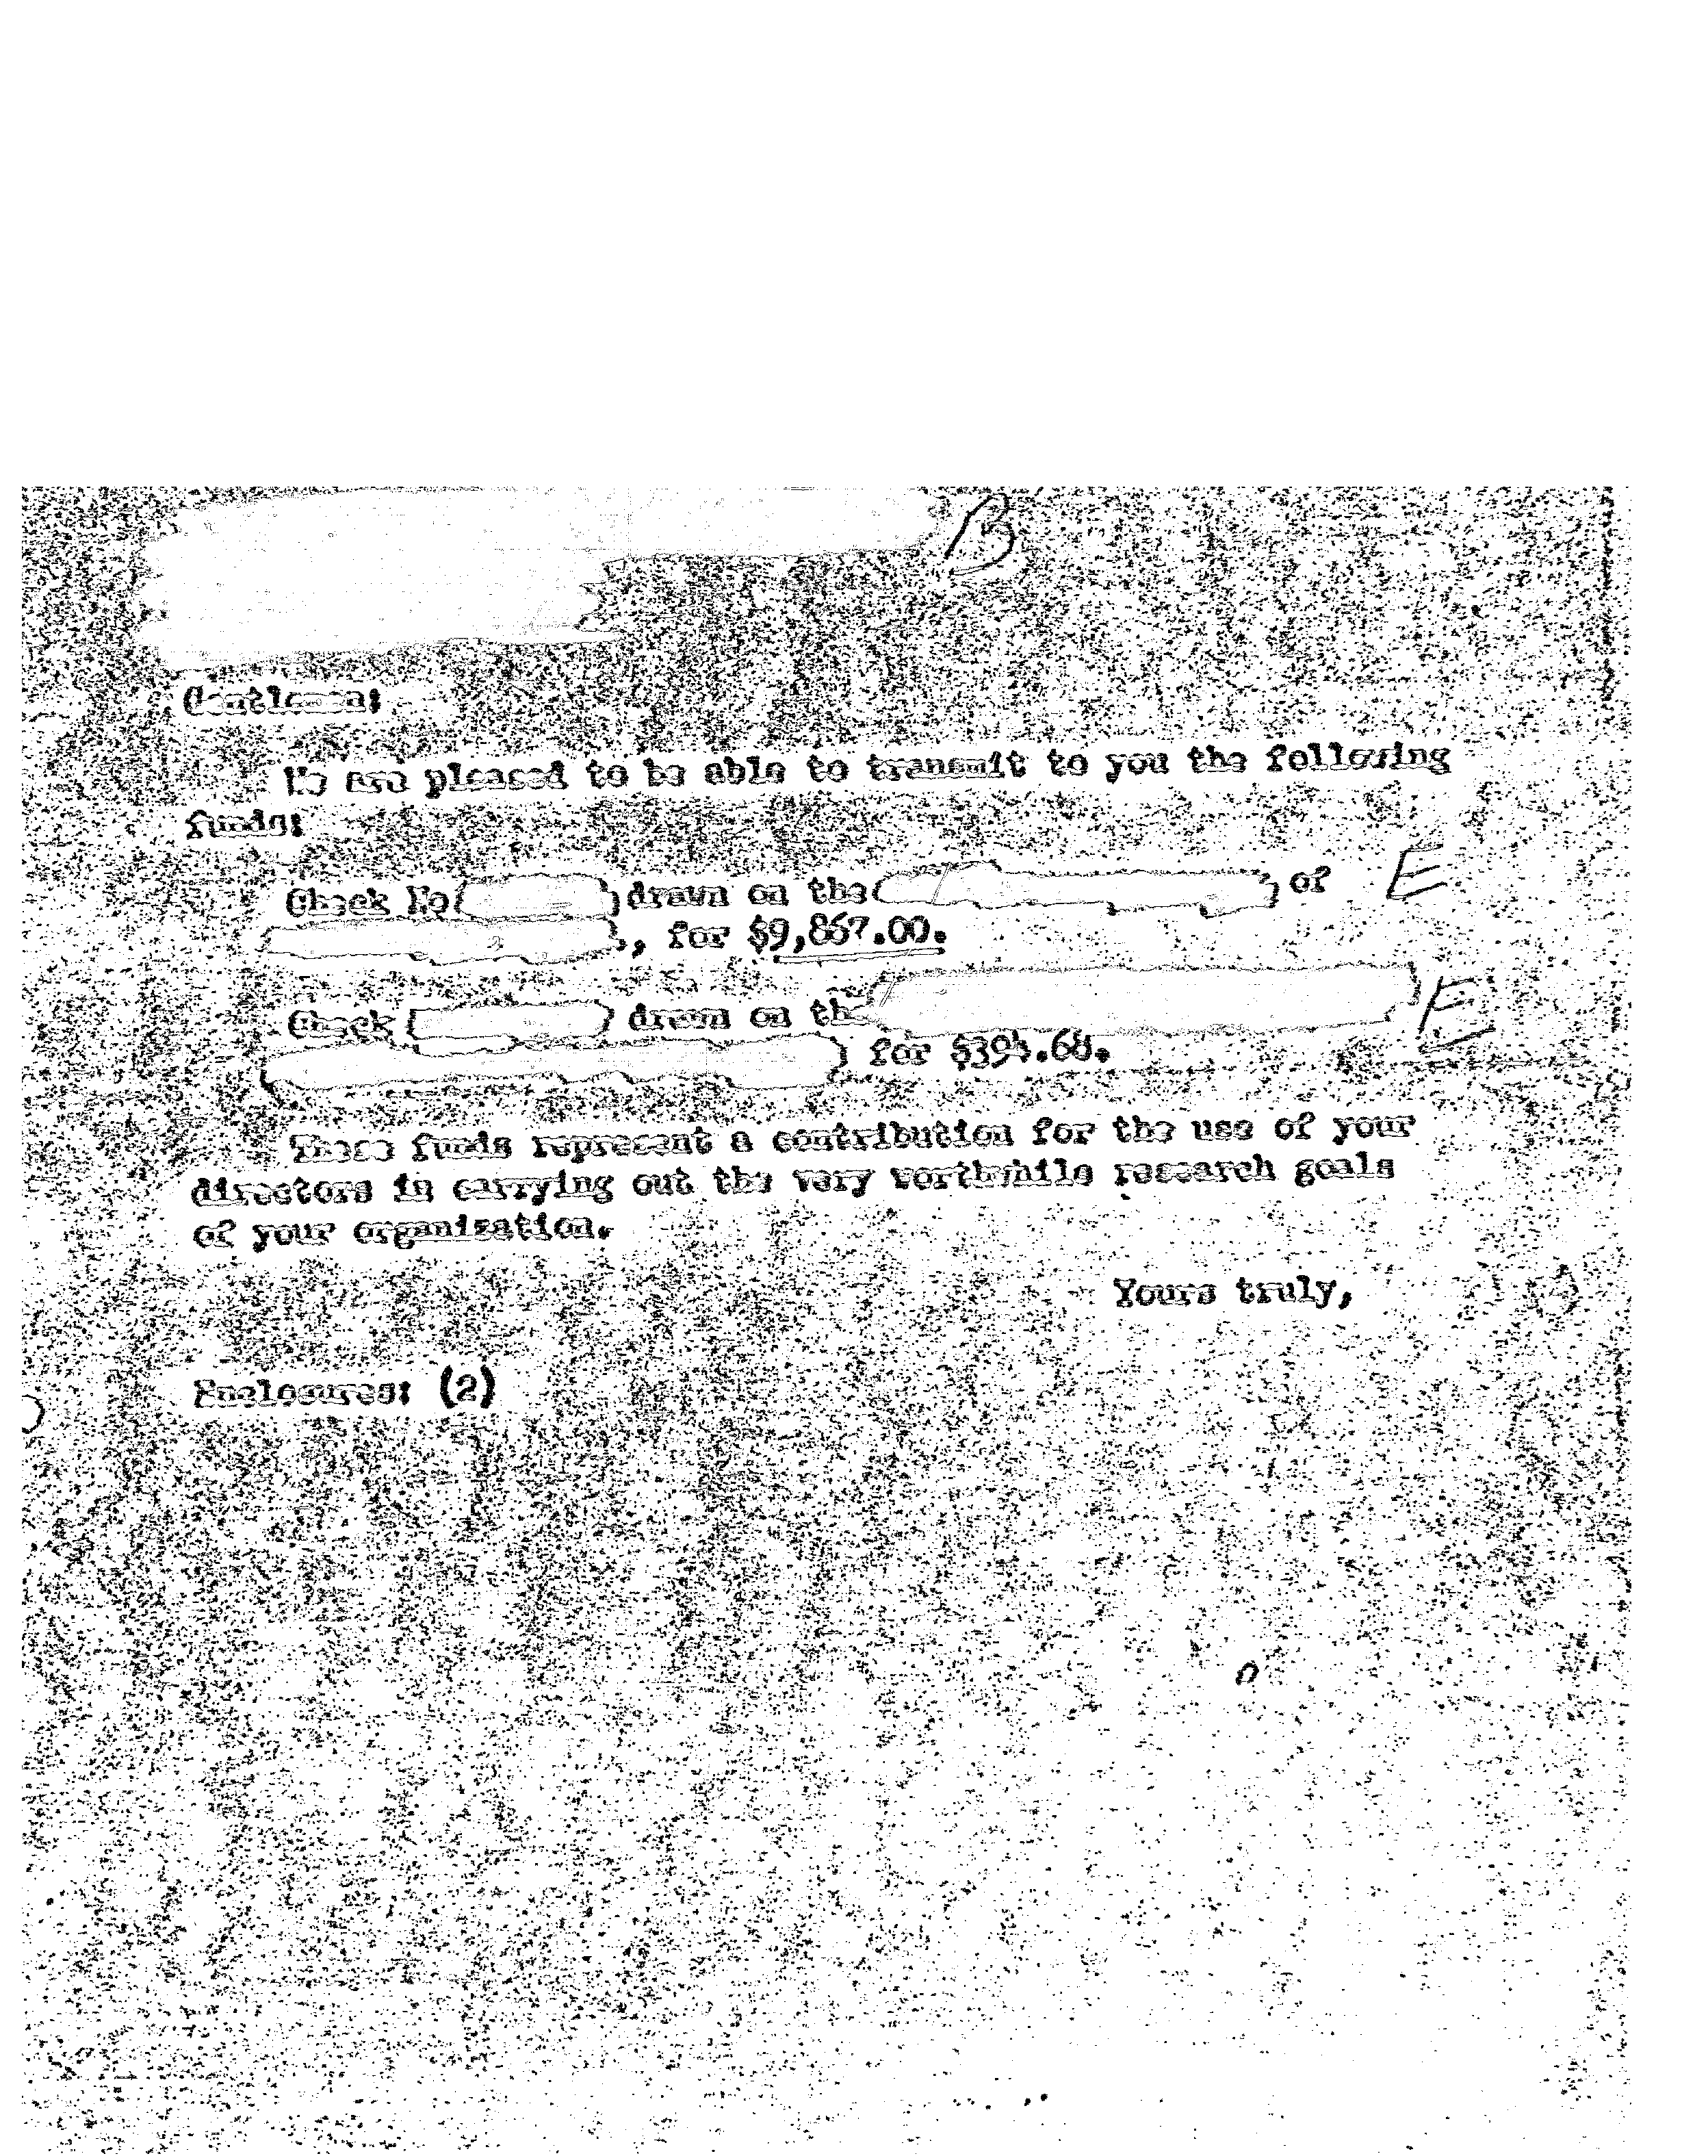 B
Gentlemen:
We are pleased to be able to transmit to you the following
funds:
Check No drawn on the of E
, for $9,867.00.
Check drawn on the E
for $394.68.
These funds represent a contribution for the use of your
directors in carrying out the very worthwhile research goals
of your organization.
Yours truly,
Enclosures: (2)